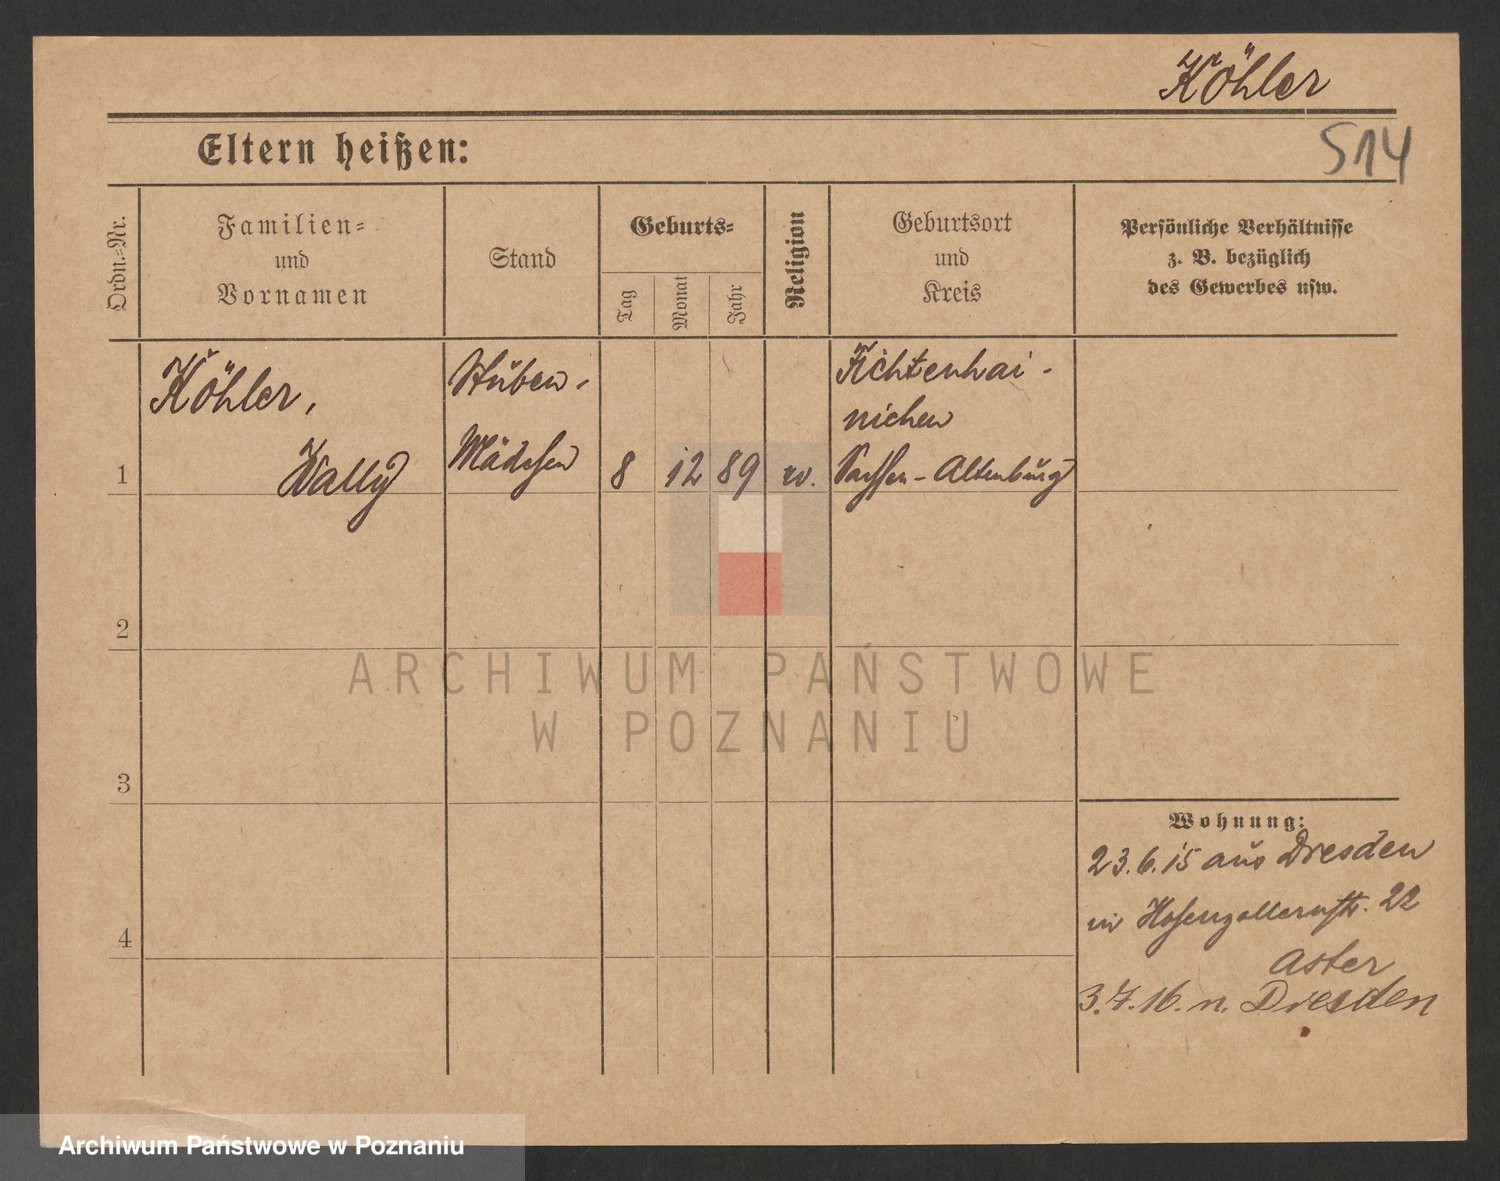 Köhler
514
Eltern heißen:
Ordn.=Nr.
Familien=
und
Vornamen
Stand
Geburts=
Tag
Monat
Jahr
Religion
Geburtsort
und
Kreis
Persönliche Verhältnisse
z. B. bezüglich
des Gewerbes usw.
1
Köhler,
Wally
Stuben-
Mädchen
8
12
89
ev.
Fichtenhai-
nichen
Sachsen-Altenburg
2
3
4
Wohnung:
23.6.15 aus Dresden
in Hohenzollernstr. 22
Aster
3.7.16. n. Dresden
ARCHIWUM PAŃSTWOWE
W POZNANIU
Archiwum Państwowe w Poznaniu